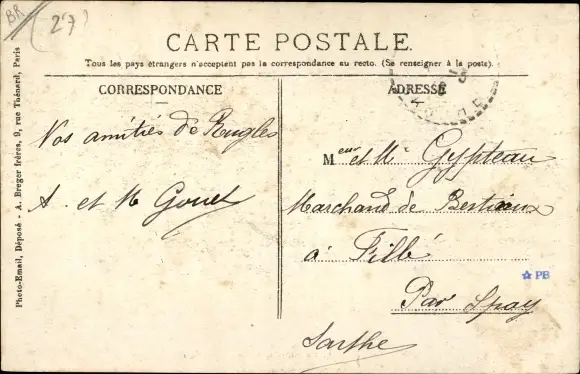 BR
(27)
CARTE POSTALE.
Tous les pays étrangers n'acceptent pas la correspondance au recto. (Se renseigner à la poste).
CORRESPONDANCE
ADRESSE
Photo-Email, Déposé - A. Breger frères, 9, rue Thénard, Paris
Nos amitiés de Rugles
A. et M Gouet
Meur et Me Gypteau
Marchand de Bestiaux
à Fillé
Par Spay
Sarthe
PB